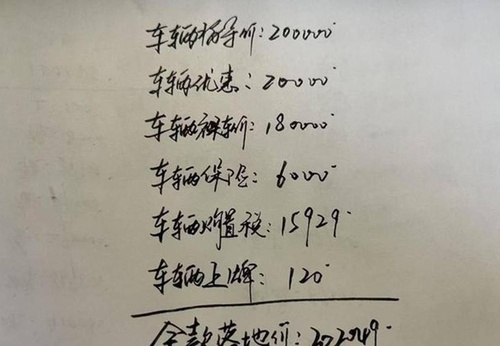 车辆指导价:200000
车辆优惠:20000
车辆裸车价:180000
车辆保险:6000
车辆购置税:15929
车辆上牌:120
全款落地价:202049